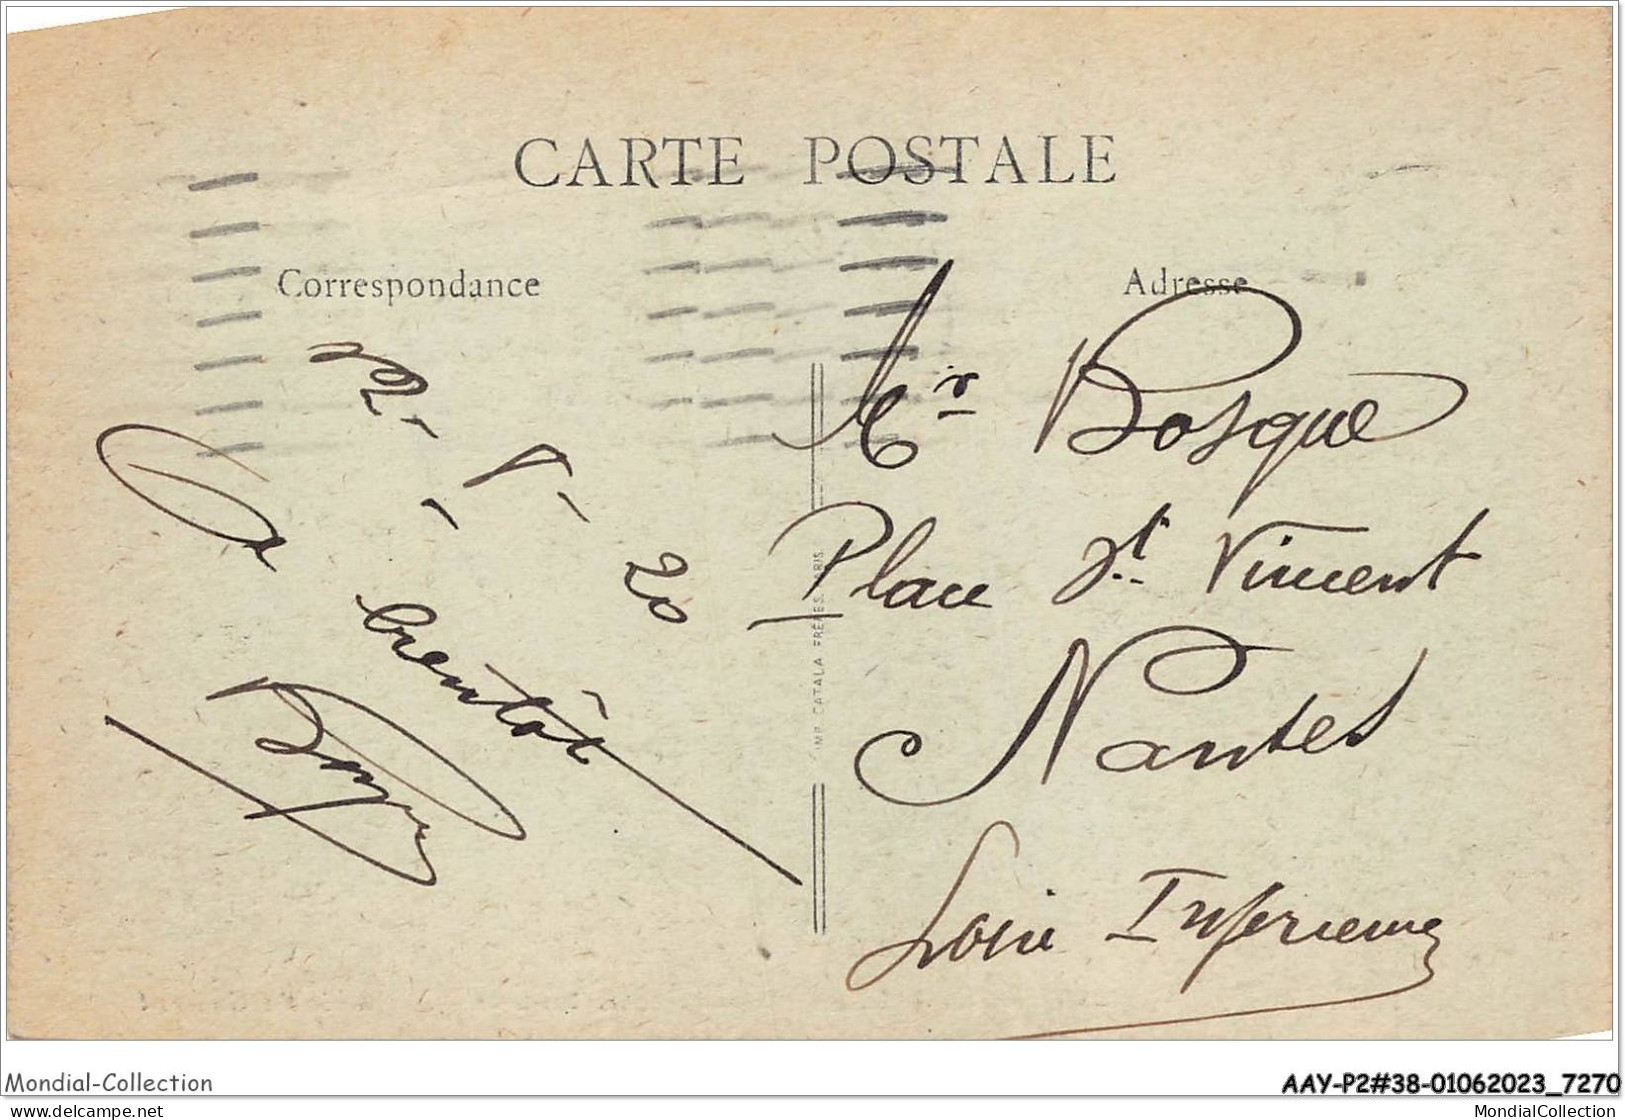 CARTE POSTALE
Correspondance
Adresse
20
à bientôt
Mr Bosque
Place St Vincent
Nantes
Loire Inférieure
IMP. CATALA FRÈRES PARIS
Mondial-Collection
AAY-P2#38-01062023_7270
www.delcampe.net
MondialCollection